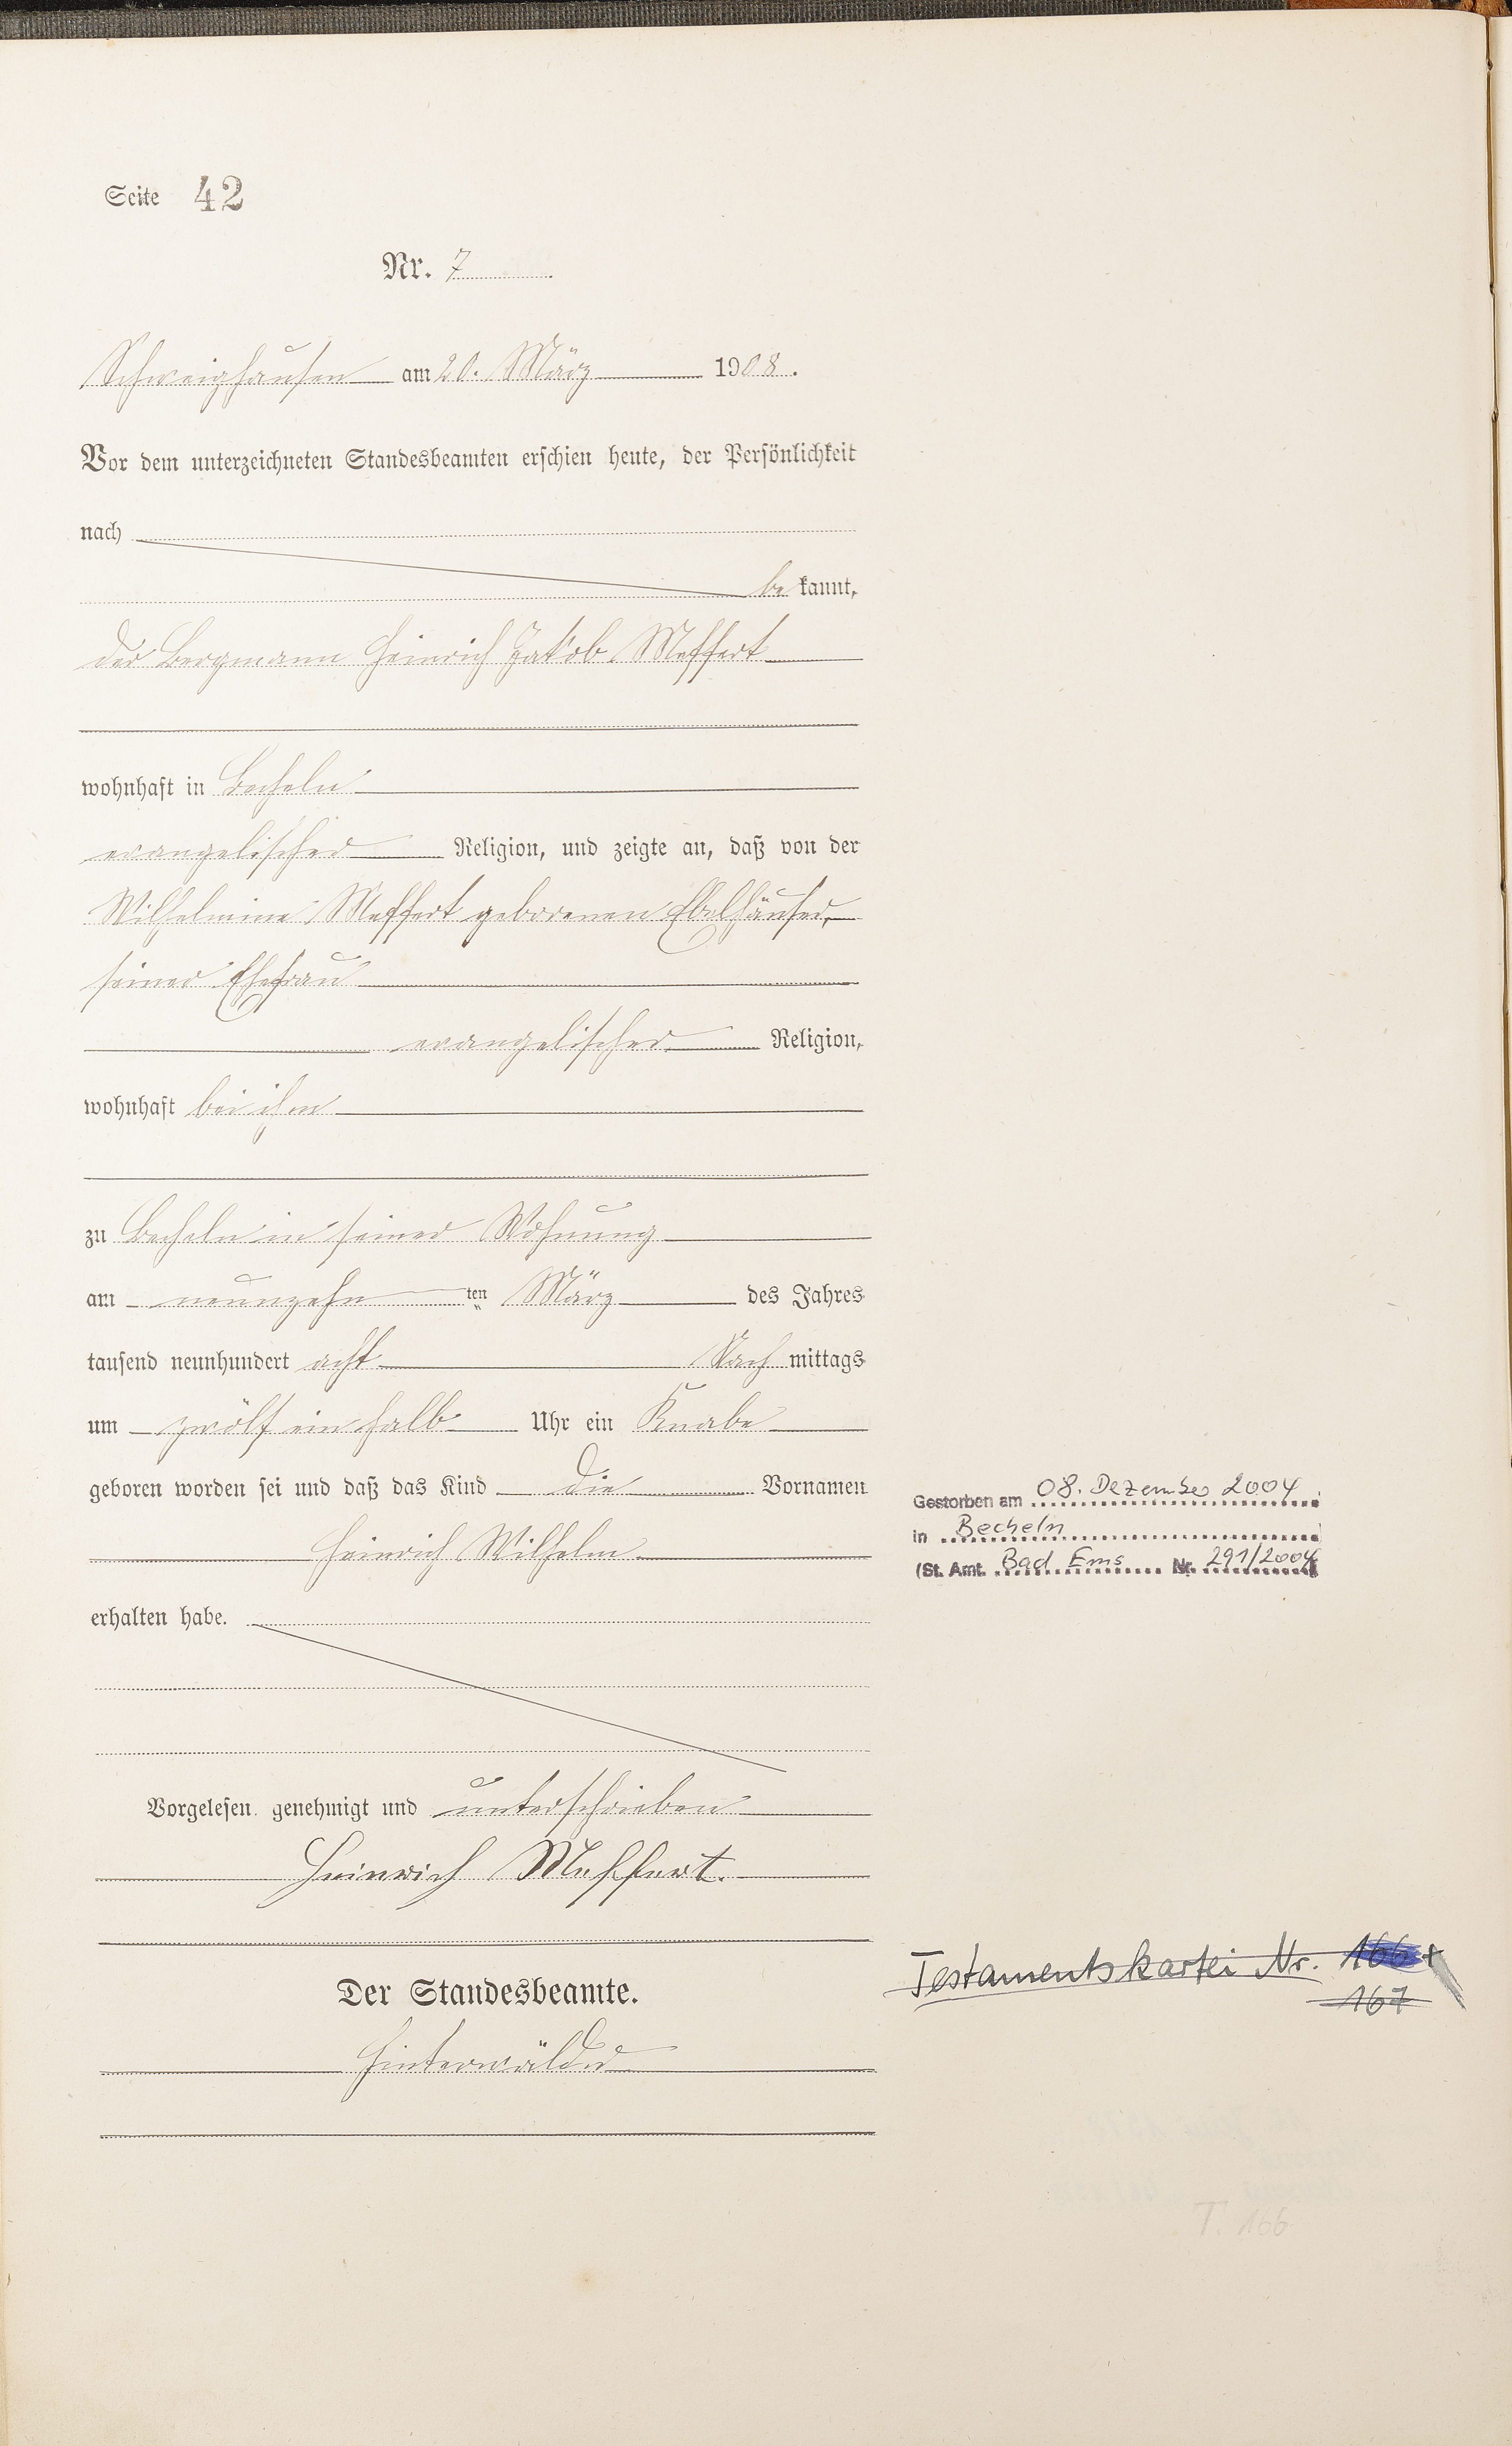 Seite 42
Nr. 7
Schweighausen am 20. März 1908.
Vor dem unterzeichneten Standesbeamten erschien heute, der Persönlichkeit
nach
bekannt,
der Bergmann Heinrich Jakob Meffert
wohnhaft in Becheln
evangelischer Religion, und zeigte an, daß von der
Wilhelmine Meffert geborenen Ebelhäuser,
seiner Ehefrau
evangelischer Religion,
wohnhaft bei ihm
zu Becheln in seiner Wohnung
am neunzehnten März des Jahres
tausend neunhundert acht Nachmittags
um zwölf ein halb Uhr ein Knabe
geboren worden sei und daß das Kind die Vornamen
Heinrich Wilhelm
erhalten habe.
Vorgelesen genehmigt und unterschrieben
Heinrich Meffert.
Der Standesbeamte.
Hinterwälder
Gestorben am 08. Dezember 2004
in Becheln
(St. Amt. Bad Ems Nr. 291/2004
Testamentskartei Nr. 166 +
167
T. 166